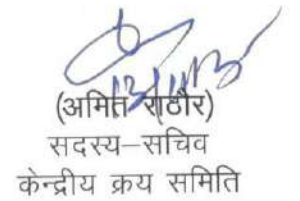 (अमित राठौर)
सदस्य–सचिव
केन्द्रीय क्रय समिति